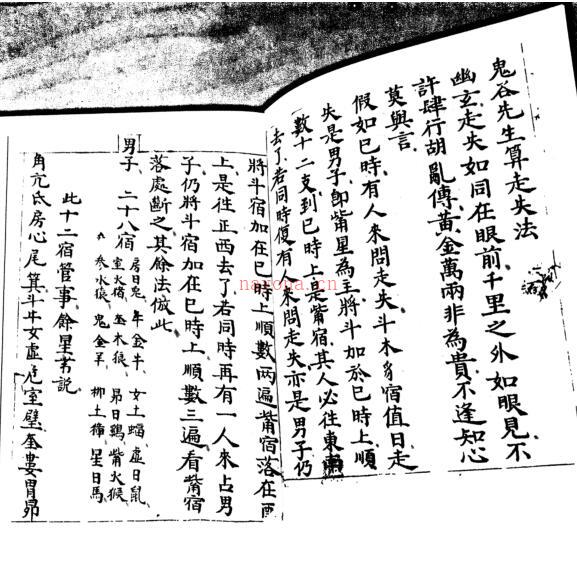 鬼谷先生算走失法
幽玄走失如同在眼前千里之外如眼見不
許肆行胡亂傳黃金萬兩非為貴不逢知心
莫與言
假如巳時有人來問走失斗木豸宿值日走
失是男子即觜星為主將斗加於巳時上順
數十二支到巳時上是觜宿其人必往東南
去了若同時復有人來問走失亦是男子仍
將斗宿加在巳時上順數兩遍觜宿落在酉
上是往正西去了若同時再有一人來占男
子仍將斗宿加在巳時上順數三遍看觜宿
落處斷之其餘法倣此
男子 二十八宿 房日兎 牛金牛 女土蝠 虛日鼠
室火猪 奎木狼 昴日鷄 觜火猴
參水猿 鬼金羊 柳土獐 星日馬
此十二宿管事餘星勿說
角亢氐房心尾箕斗牛女虛危室壁奎婁胃昴
nayona.cn